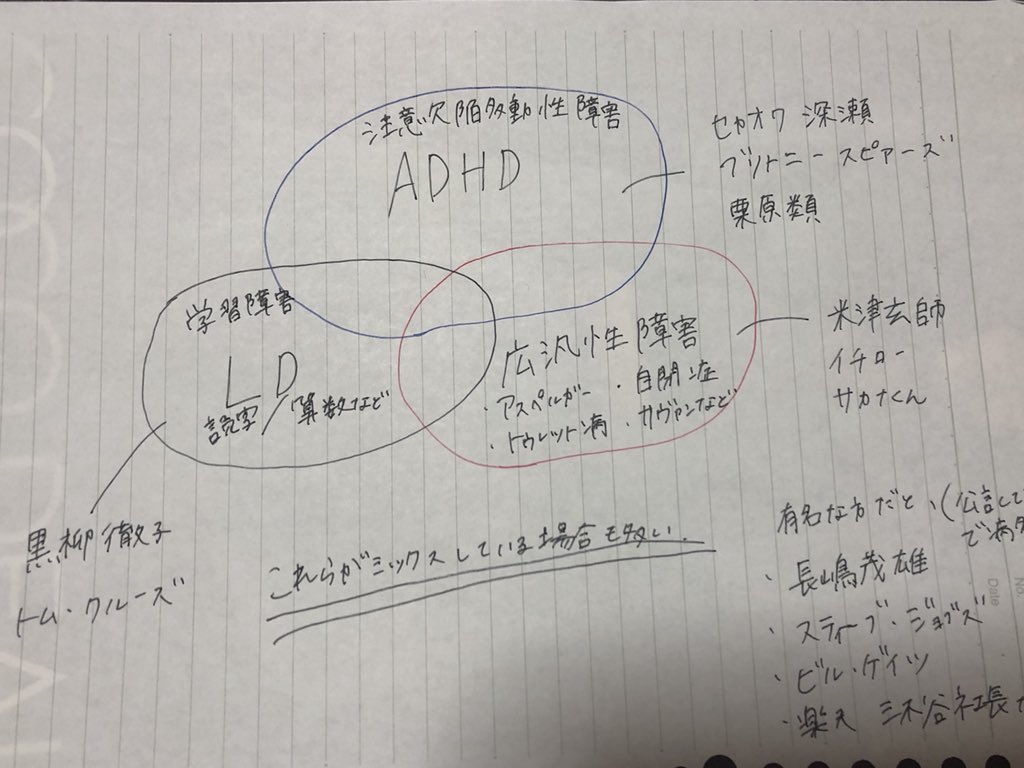 注意欠陥多動性障害
ADHD
セカオワ 深瀬
ブリトニー スピアーズ
栗原類
学習障害
LD
読字/算数など
広汎性障害
・アスペルガー ・自閉症
・トゥレット病 ・サヴァンなど
米津玄師
イチロー
サカナくん
黒柳徹子
トム・クルーズ
これらがミックスしている場合も多い.
有名な方だと、(公言して
で病
・長嶋茂雄
・スティーブ・ジョブズ
・ビル・ゲイツ
・楽天 三木谷社長
No.
Date